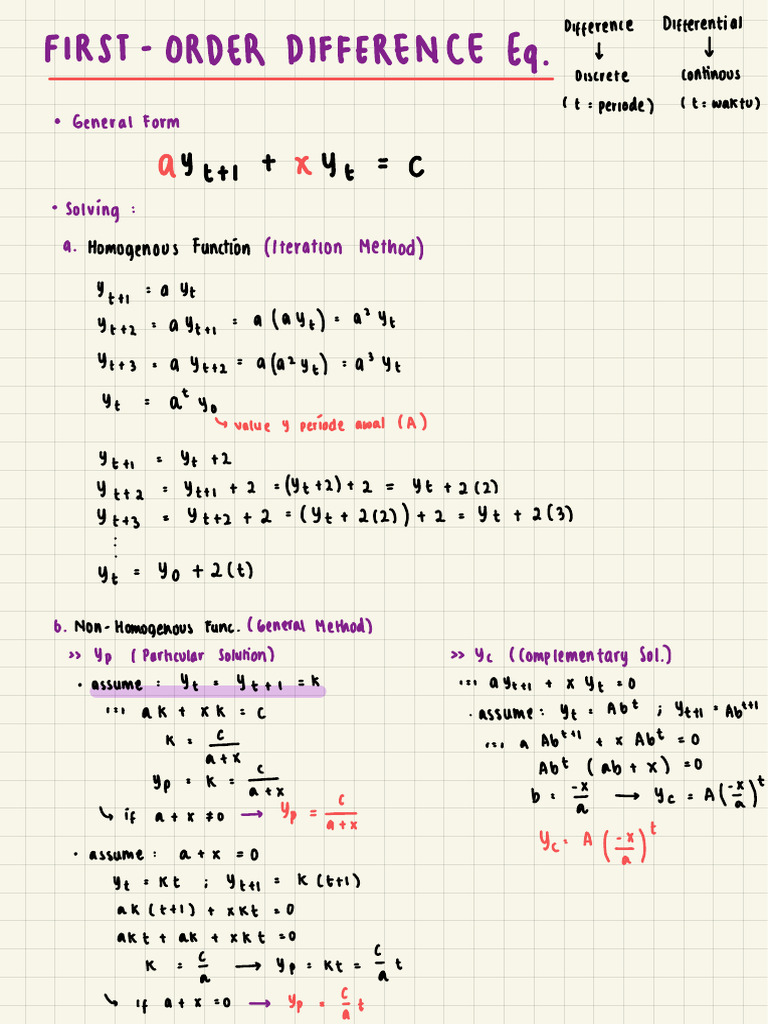 FIRST-ORDER DIFFERENCE Eq.
Difference
↓
Discrete
(t = periode)
Differential
↓
Continous
(t = waktu)
• General Form
ay_{t+1} + xy_t = c
• Solving :
a. Homogenous Function (Iteration Method)
y_{t+1} = a y_t
y_{t+2} = a y_{t+1} = a (a y_t) = a² y_t
y_{t+3} = a y_{t+2} = a(a² y_t) = a³ y_t
y_t = a^t y_0
↳ value y periode awal (A)
y_{t+1} = y_t + 2
y_{t+2} = y_{t+1} + 2 = (y_t + 2) + 2 = y_t + 2(2)
y_{t+3} = y_{t+2} + 2 = (y_t + 2(2)) + 2 = y_t + 2(3)
⋮
y_t = y_0 + 2(t)
b. Non-Homogenous Func. (General Method)
>> y_p (Particular Solution)
• assume : y_t = y_{t+1} = k
ak + xk = c
k = c/(a+x)
y_p = k = c/(a+x)
↳ if a + x ≠ 0 → y_p = c/(a+x)
• assume : a + x = 0
y_t = kt ; y_{t+1} = k(t+1)
ak(t+1) + xkt = 0
akt + ak + xkt = 0
k = c/a → y_p = kt = c/a t
↳ if a + x = 0 → y_p = c/a t
>> y_c (Complementary Sol.)
ay_{t+1} + x y_t = 0
• assume : y_t = Ab^t ; y_{t+1} = Ab^{t+1}
a Ab^{t+1} + x Ab^t = 0
Ab^t (ab + x) = 0
b = -x/a → y_c = A(-x/a)^t
y_c = A (-x/a)^t